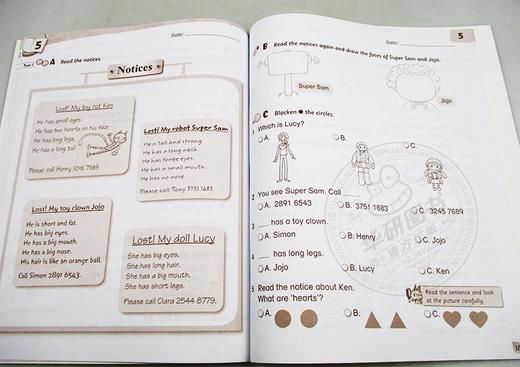 5
Date:
Text 1
A Read the notices.
Notices
Lost! My toy cat Ken
He has small eyes.
He has two hearts on his face.
He has long legs.
He has a long tail.
Please call Henry 3245 7689.
Lost! My robot Super Sam
He is tall and strong.
He has a long neck.
He has three eyes.
He has a small mouth.
He has no nose.
Please call Tony 3751 1683.
Lost! My toy clown Jojo
He is short and fat.
He has big eyes.
He has a big mouth.
He has a big nose.
His hair is like an orange ball.
Call Simon 2891 6543.
Lost! My doll Lucy
She has big eyes.
She has long hair.
She has a big mouth.
She has short legs.
Please call Clara 2544 8779.
Date:
5
B Read the notices again and draw the faces of Super Sam and Jojo.
Super Sam
Jojo
C Blacken the circles.
Which is Lucy?
A.
B.
C.
You see Super Sam. Call
A. 2891 6543
B. 3751 1683
C. 3245 7689
has a toy clown.
A. Simon
B. Henry
C. Jojo
has long legs.
A. Jojo
B. Lucy
C. Ken
Read the notice about Ken.
What are 'hearts'?
Read the sentence and look
at the picture carefully.
A.
B.
C.